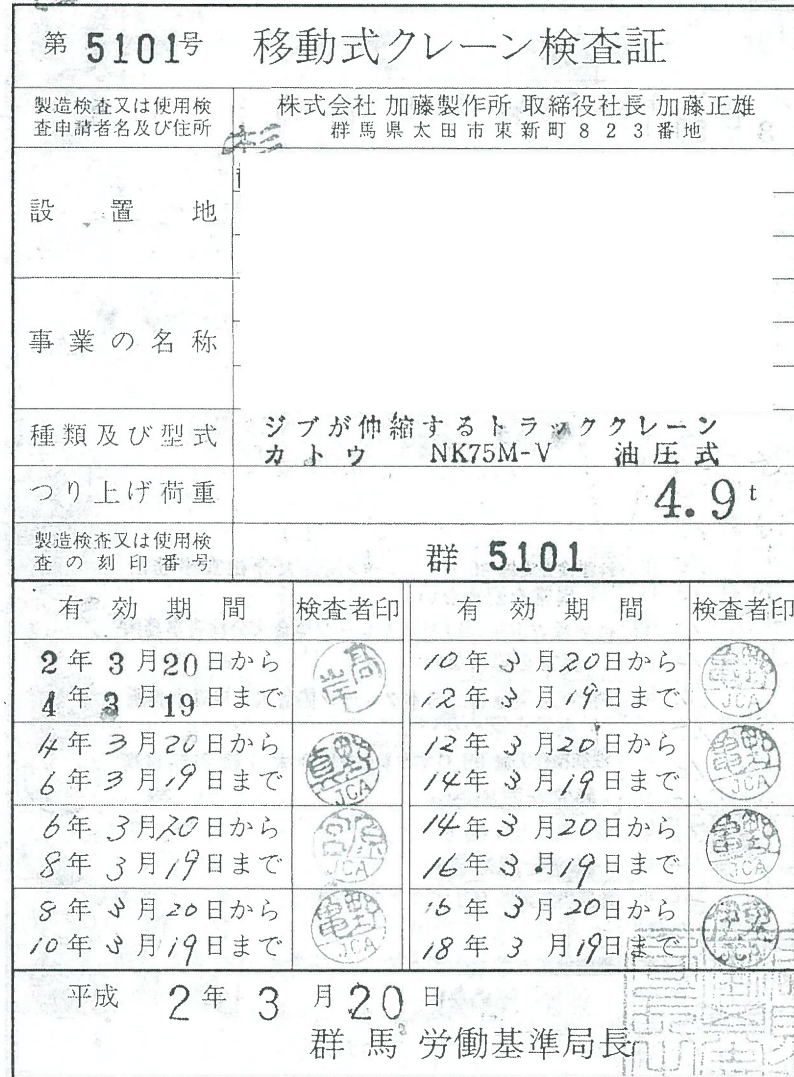 第 5101号 移動式クレーン検査証
製造検査又は使用検
査申請者名及び住所
株式会社 加藤製作所 取締役社長 加藤正雄
群馬県太田市東新町823番地
設置地
事業の名称
種類及び型式
ジブが伸縮するトラッククレーン
カトウ NK75M-V 油圧式
つり上げ荷重
4.9 t
製造検査又は使用検
査の刻印番号
群 5101
有効期間 検査者印 有効期間 検査者印
2年3月20日から
4年3月19日まで
4年3月20日から
6年3月19日まで
JCA
6年3月20日から
8年3月19日まで
JCA
8年3月20日から
10年3月19日まで
JCA
10年3月20日から
12年3月19日まで
JCA
12年3月20日から
14年3月19日まで
JCA
14年3月20日から
16年3月19日まで
JCA
16年3月20日から
18年3月19日まで
JCA
平成 2年3月20日
群馬労働基準局長